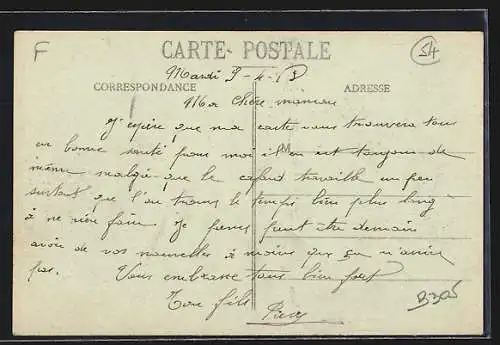 F
CARTE POSTALE
54
Mardi 9-4-18
CORRESPONDANCE
ADRESSE
Ma chère maman
J'espère que ma carte vous trouvera tous
en bonne santé pour moi il en est toujours de
même malgré que le cafard travaille un peu
surtout que l'on trouve le temps bien plus long
à ne rien faire. Je pense peut être demain
avoir de vos nouvelles à moins que ça n'arrive
pas. Vous embrasse tous bien fort
Ton fils